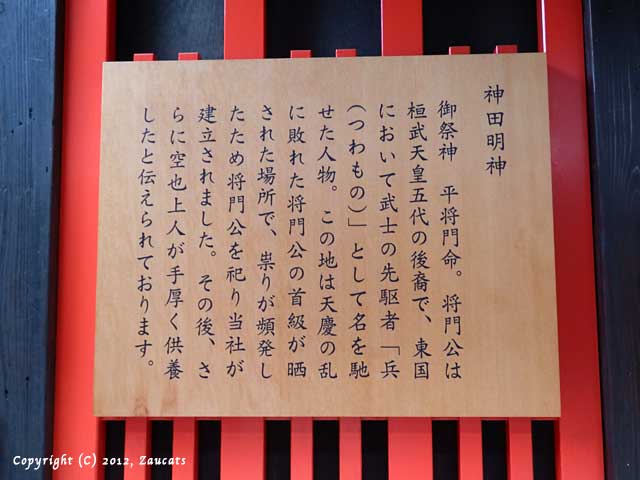 神田明神
御祭神　平将門命。将門公は
桓武天皇五代の後裔で、東国
において武士の先駆者「兵
（つわもの）」として名を馳
せた人物。この地は天慶の乱
に敗れた将門公の首級が晒
された場所で、祟りが頻発し
たため将門公を祀り当社が
建立されました。その後、さ
らに空也上人が手厚く供養
したと伝えられております。
Copyright (C) 2012, Zaucats